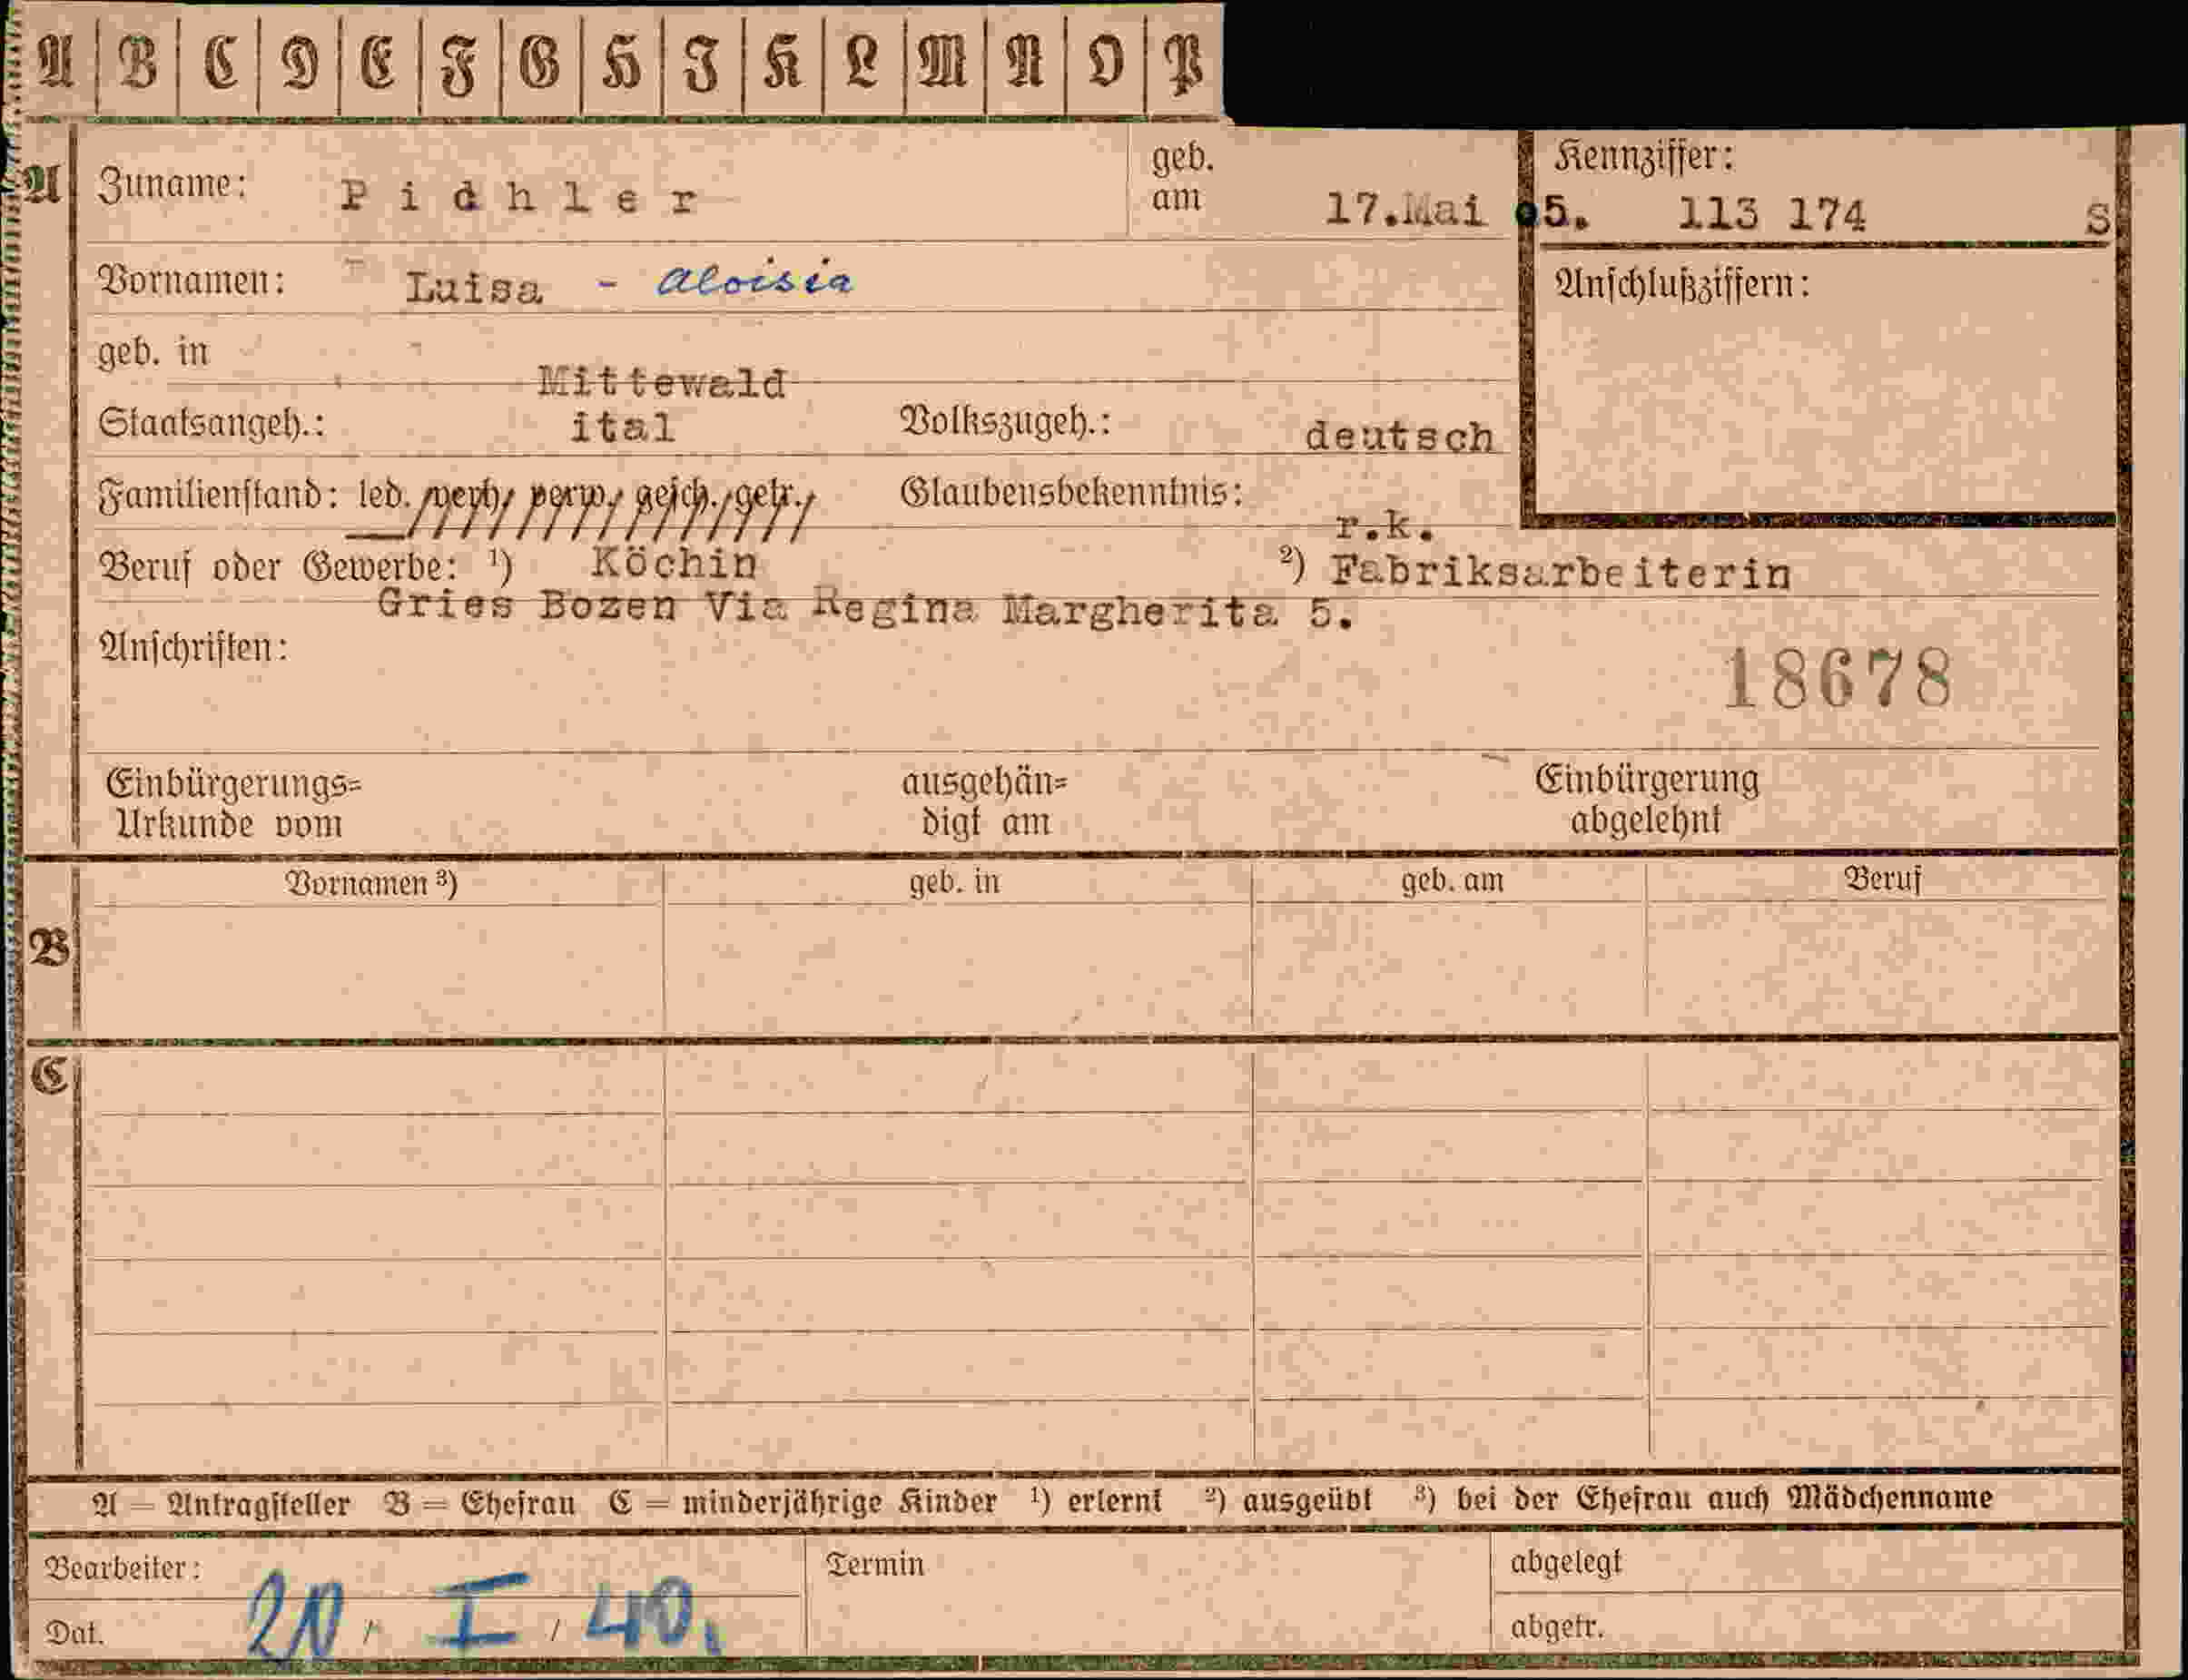 A B C D E F G H I K L M N O P
A Zuname: Pichler geb. am 17.Mai 05. Kennziffer: 113 174 S
Vornamen: Luisa - Aloisia Anschlußziffern:
geb. in Mittewald
Staatsangeh.: ital Volkszugeh.: deutsch
Familienstand: led. / verh. / verw. / gesch. / getr. / Glaubensbekenntnis: r.k.
Beruf oder Gewerbe: ¹) Köchin ²) Fabriksarbeiterin
Gries Bozen Via Regina Margherita 5.
Anschriften:
18678
Einbürgerungs= ausgehän= Einbürgerung
Urkunde vom digt am abgelehnt
Vornamen ³) geb. in geb. am Beruf
B
C
A = Antragsteller B = Ehefrau C = minderjährige Kinder ¹) erlernt ²) ausgeübt ³) bei der Ehefrau auch Mädchenname
Bearbeiter: Termin abgelegt
Dat. 20 / I / 40. abgetr.